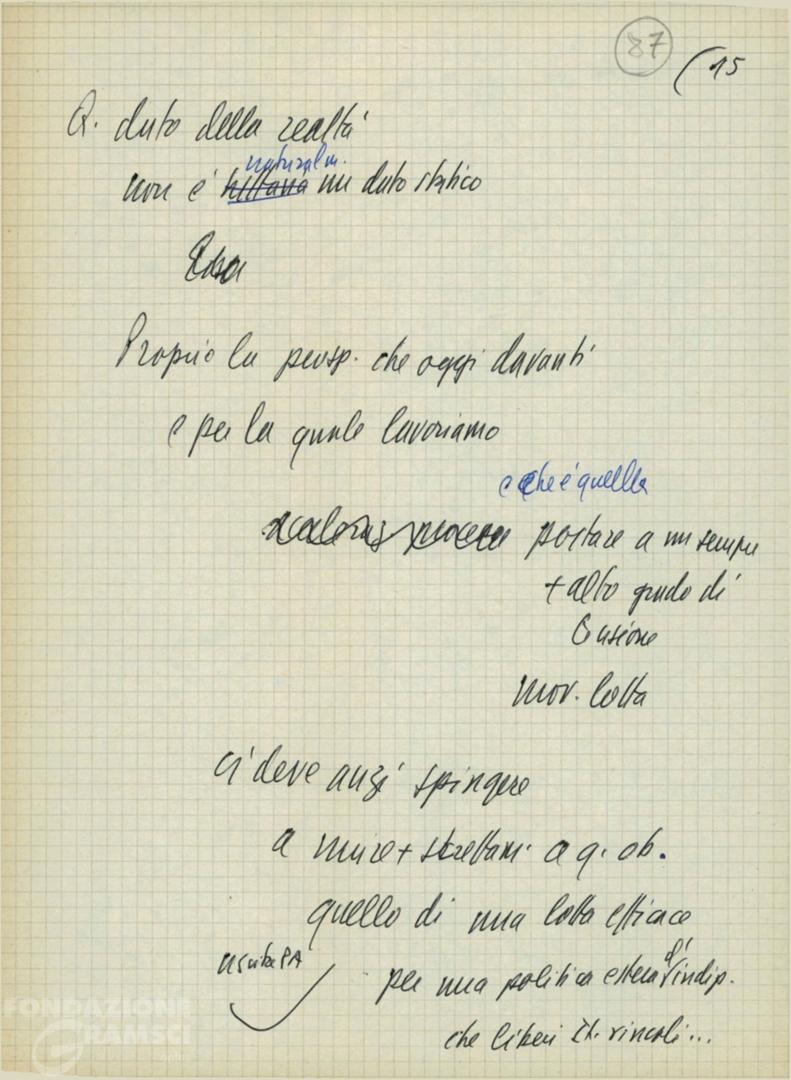 87
(15
Q. dato della realtà
naturalm.
non è un dato statico
Proprio la persp. che oggi davanti
e per la quale lavoriamo
e che è quella
portare a un sempre
+ alto grado di
mov. lotta
ci deve anzi spingere
a unire + strettam. a q. ob.
quello di una lotta efficace
uscita PA
per una politica estera di indip.
che liberi It. vincoli...
FONDAZIONE
GRAMSCI